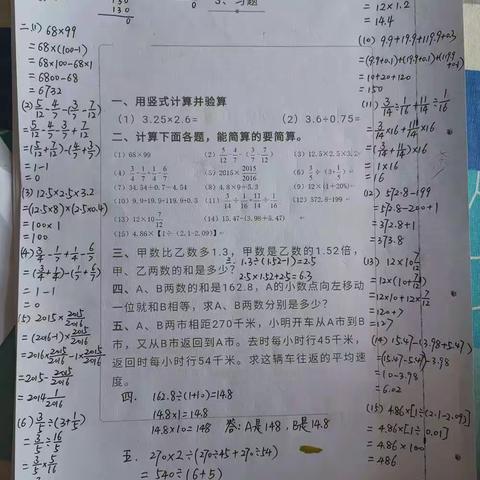 3、习题
二.(1) 68×99
=68×(100-1)
=68×100-68×1
=6800-68
=6732
(2) 5/12-4/7-(3/7-7/12)
=5/12-4/7-3/7+7/12
=(5/12+7/12)-(4/7+3/7)
=1-1
=0
(3) 12.5×2.5×3.2
=(12.5×8)×(2.5×0.4)
=100×1
=100
(4) 3/4-1/7+1/4-6/7
=(3/4+1/4)-(1/7+6/7)
=1-1
=0
(5) 2015×2015/2016
=(2016-1)×2015/2016
=2016×2015/2016-1×2015/2016
=2015-2015/2016
=2014 1/2016
(6) 3/5÷(3+1/5)
=3/5÷16/5
=3/5×5/16
一、用竖式计算并验算
(1) 3.25×2.6= (2) 3.6÷0.75=
二、计算下面各题，能简算的要简算。
(1) 68×99 (2) 5/12-4/7-(3/7-7/12) (3) 12.5×2.5×3.2
(4) 3/4-1/7+1/4-6/7 (5) 2015×2015/2016 (6) 3/5÷(3+1/5)
(7) 34.54÷0.7-4.54 (8) 4.8×9÷5.3 (9) 12×(1+20%)
(10) 9.9+19.9+119.9+0.3 (11) 3/14÷1/16+11/14÷1/16 (12) 572.8-199
(13) 12×10 7/12 (14) 15.47-(3.98+5.47)
(15) 4.86×【1÷(2.1-2.09)】
三、甲数比乙数多1.3，甲数是乙数的1.52倍，
甲、乙两数的和是多少？
三=1.3÷(1.52-1)=2.5
2.5×1.52+2.5=6.3
四、A、B两数的和是162.8，A的小数点向左移动
一位就和B相等，求A、B两数分别是多少？
五、A、B两市相距270千米，小明开车从A市到B
市，又从B市返回到A市。去时每小时行45千米，
返回时每小时行54千米。求这辆车往返的平均速
度。
四. 162.8÷(1+10)=14.8
14.8×1=14.8
14.8×10=148 答：A是148，B是14.8
五. 270×2÷(270÷45+270÷54)
=540÷(6+5)
=12×1.2
=14.4
(10) 9.9+19.9+119.9+0.3
=(9.9+0.1)+(19.9+0.1)+(119.9+0.1)
=10+20+120
=150
(11) 3/14÷1/16+11/14÷1/16
=3/14×16+11/14×16
=(3/14+11/14)×16
=1×16
=16
(12) 572.8-199
=572.8-200+1
=372.8+1
=373.8
(13) 12×10 7/12
=12×(10+7/12)
=12×10+12×7/12
=120+7
=127
(14) 15.47-(3.98+5.47)
=(15.47-5.47)-3.98
=10-3.98
=6.02
(15) 4.86×[1÷(2.1-2.09)]
=4.86×[1÷0.01]
=4.86×100
=486